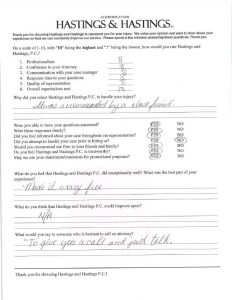 ATTORNEYS AT LAW
HASTINGS & HASTINGS
Thank you for choosing Hastings and Hastings to represent you for your injury. We value your opinion and want to know about your
experience so that we can constantly improve our service. Please spend a few minutes answering these questions. Thank you.
On a scale of 1-10, with "10" being the highest and "1" being the lowest, how would you rate Hastings and
Hastings, P.C.?
1. Professionalism
2. Confidence in your Attorney
3. Communication with your case manager
4. Response time to your questions
5. Quality of representation
6. Overall expectations met
Why did you select Hastings and Hastings P.C. to handle your injury?
Was recommended by a friend
Were you able to have your questions answered? YES NO
Were these responses timely? YES NO
Did you feel informed about your claim throughout our representation? YES NO
Did you attempt to handle your case prior to hiring us? YES NO
Would you recommend our firm to your friends and family? YES NO
Do you feel Hastings and Hastings P.C. is trustworthy? YES NO
May we use your statements/comments for promotional purposes? YES NO
What do you feel that Hastings and Hastings P.C. did exceptionally well? What was the best part of your
experience?
Made it worry free
What do you think that Hastings and Hastings P.C. could improve upon?
N/A
What would you say to someone who is hesitant to call an attorney?
To give you a call and just talk.
Thank you for choosing Hastings and Hastings P.C.!